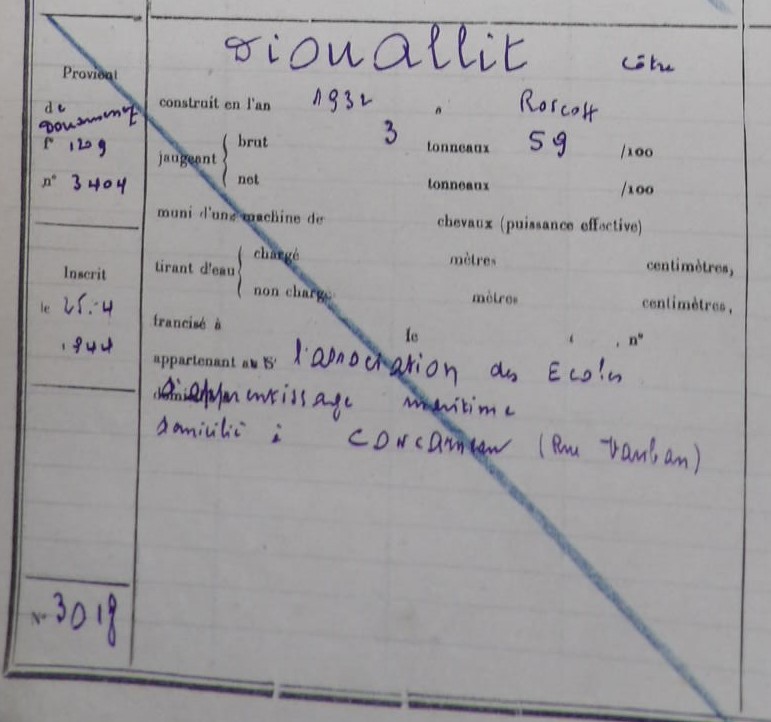 Diouallit côtre
Provient
de
Douarnenez
f° 1209
n° 3404
construit en l'an 1932 à Roscoff
jaugeant { brut 3 tonneaux 59 /100
net tonneaux /100
muni d'une machine de chevaux (puissance effective)
Inscrit
le 25.4
.1944
tirant d'eau { chargé mètres centimètres,
non chargé mètres centimètres,
francisé à le , n°
appartenant au S' l'association des Ecoles
d'apprentissage maritime
domicilié à Concarneau (Rue Vauban)
N° 3018